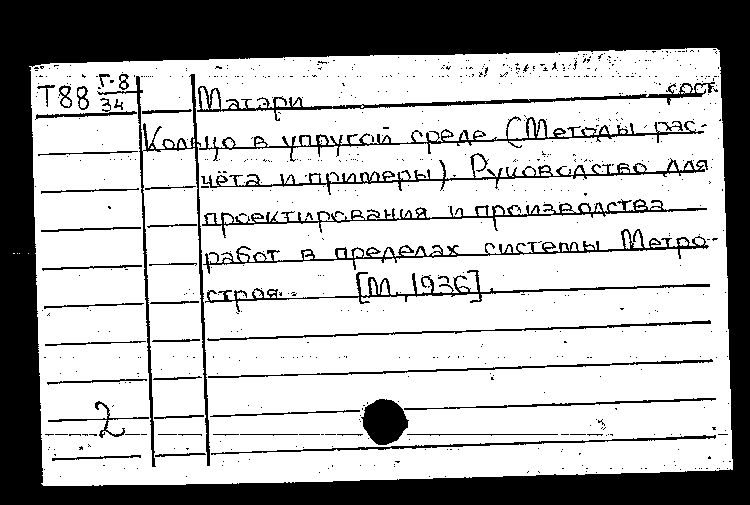 Т88 Г-8/34 Матари сост.
Кольцо в упругой среде. (Методы рас-
чёта и примеры). Руководство для
проектирования и производства
работ в пределах системы Метро-
строя. [М., 1936].
2